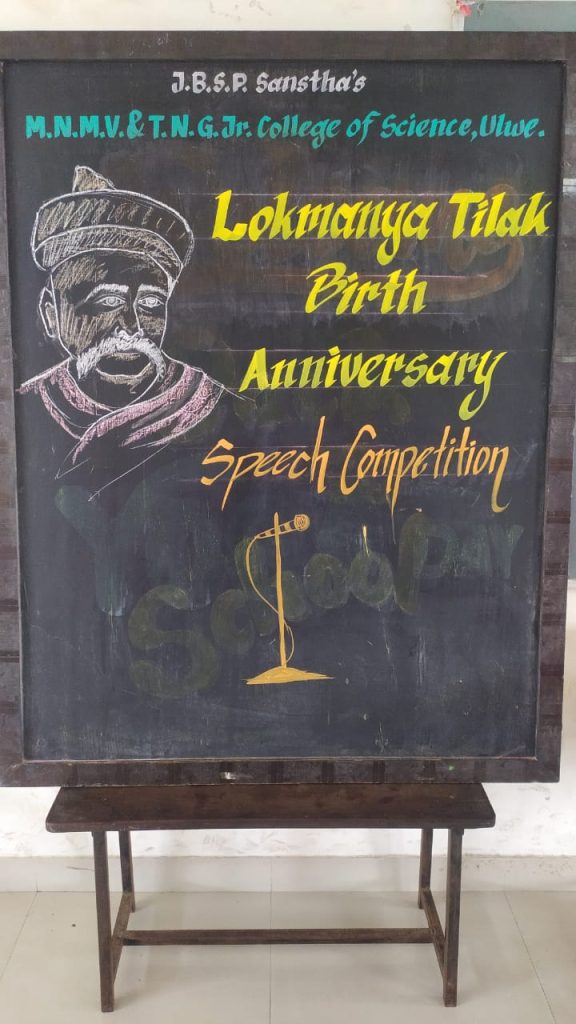 J.B.S.P. Sanstha's
M.N.M.V. & T.N.G. Jr. College of Science, Ulwe.
Lokmanya Tilak
Birth
Anniversary
Speech Competition
School Day